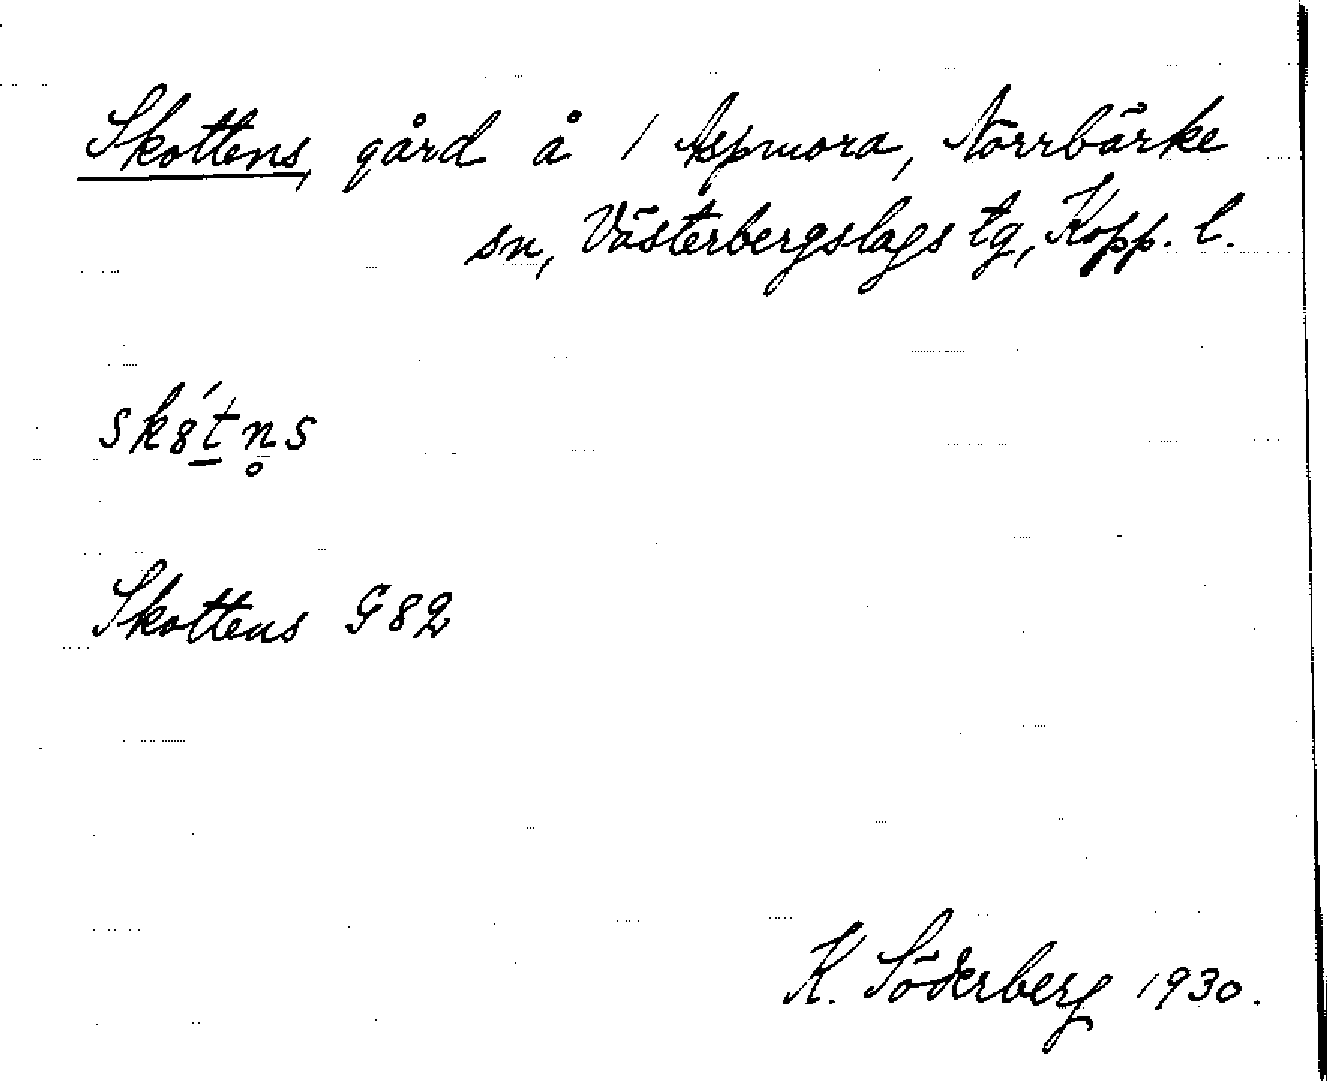 Skottens, gård å 1 Aspmora, Norrbärke
sn, Västerbergslags tg, Kopp. l.
sk8́t̲n̥s
Skottens G 82
K. Söderberg 1930.